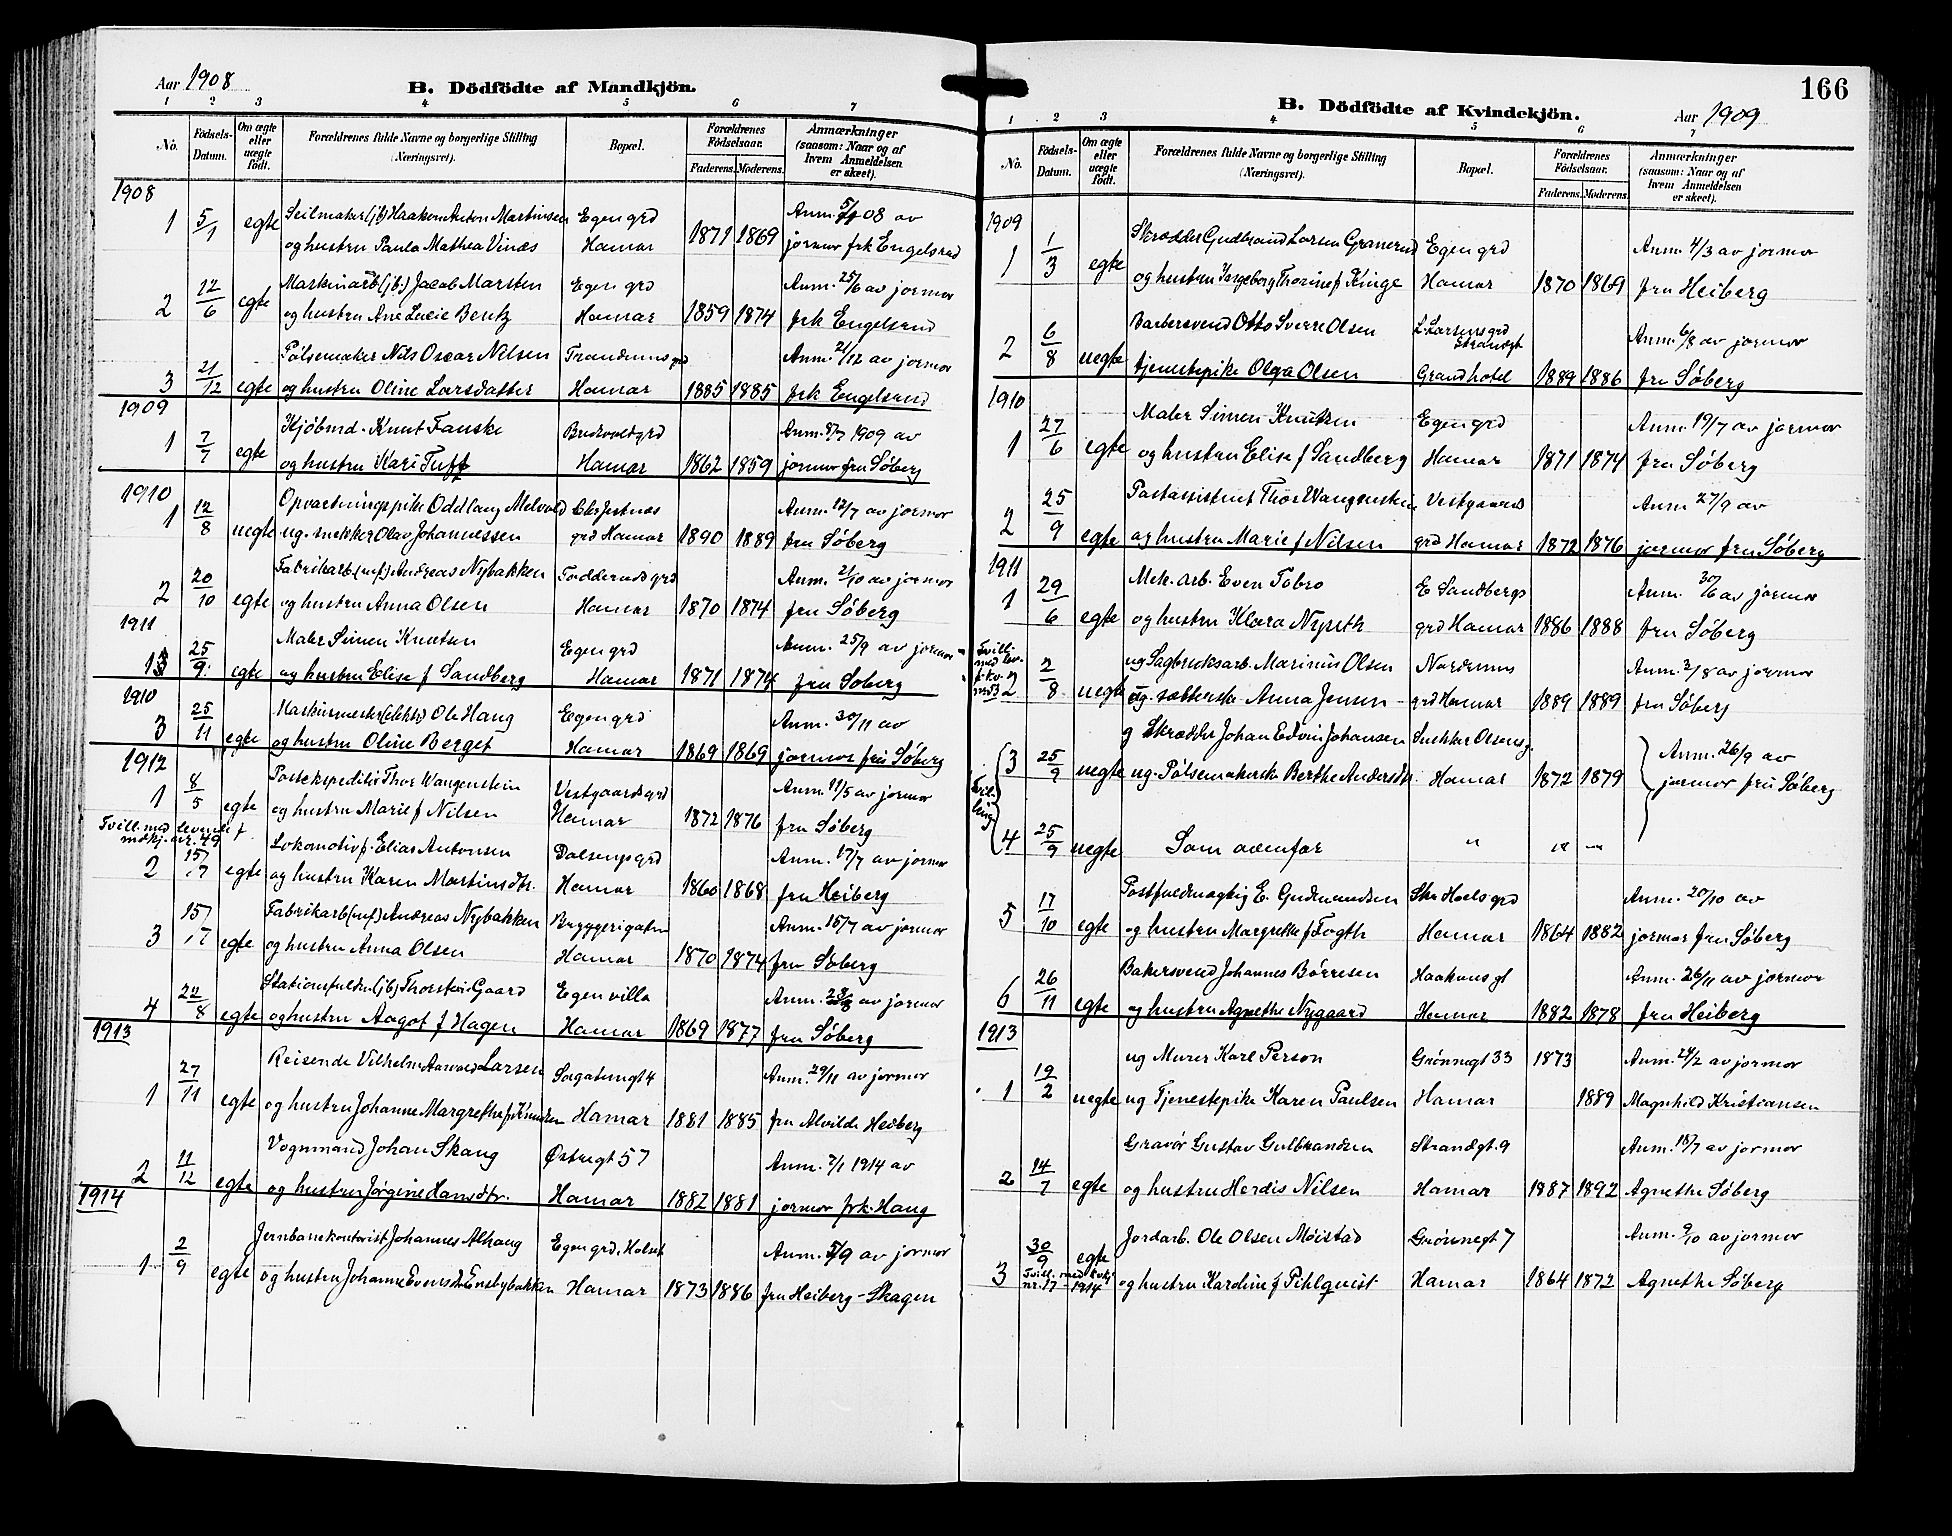 Aar 1908
B. Dödfödte af Mandkjön.
1 2 3 4 5 6 7
No.
Födsels-Datum.
Om ægte eller uægte födt.
Forældrenes fulde Navne og borgerlige Stilling (Næringsvei).
Bopæl.
Forældrenes Födselsaar.
Faderens. Moderens.
Anmærkninger (saasom: Naar og af hvem Anmeldelsen er skeet).
1908
1 5/1 egte Seilmaker (jb) Haakon Anton Martinsen Egen grd Anm. 5/1 08 av
og hustru Paula Mathea Vinæs Hamar 1871 1869 jormor frk Engelsrud
2 12/6 egte Maskinarb (jb.) Jacob Marsten Egen grd Anm. 25/6 av jormor
og hustru Ane Lucie Bentz Hamar 1859 1874 frk Engelsrud
3 21/12 egte Pølsemaker Nils Oscar Nilsen Tranderunsgrd Anm. 21/12 av jormor
og hustru Oline Larsdatter Hamar 1885 1885 frk Engelsrud
1909
1 7/7 egte Kjöbmd. Knut Fauske Hamar
og hustru Kari Tuff 1862 1859 Anm. 1909 av jormor fru Søberg
1910
1 12/8 uegte Opvartningspike Oddlaug Melvold
ug. snekker Olav Johannessen grd Hamar 1890 1889 Anm. 12/7 av jormor fru Søberg
2 20/10 egte Fabrikarb. Andreas Nybakken Anm. 21/10 av jormor
og hustru Anna Olsen Hamar 1870 1874 fru Søberg
1911
1 25/9 egte Maler Simen Knutsen Egen grd Anm. 25/9 av jormor
og hustru Elise f Sandberg Hamar 1871 1874 fru Søberg
1910
3 25/11 egte Maskinmester (elektr) Ole Haug Egen grd Anm. 30/11 av
og hustru Oline Berget Hamar 1869 1869 jormor fru Søberg
1912
1 8/5 egte Postekspeditör Thor Wangenstein Vestgaardsgrd Anm. 11/5 av jormor
og hustru Marie f Nilsen Hamar 1872 1876 fru Søberg
Tvill. med levende f. mdkj. nr. 49
2 15/7 egte Lokomotivf. Elias Antonsen Dalsengsgrd Anm. 17/7 av jormor
og hustru Karen Martinsdtr. Hamar 1860 1868 fru Heiberg
3 15/7 egte Fabrikarb Andreas Nybakken Bryggerigaten Anm. 15/7 av jormor
og hustru Anna Olsen Hamar 1870 1874 fru Søberg
4 22/8 egte Stationsfuldm (jb) Thorstein Gaard Egen villa Anm. av jormor
og hustru Aagot f Hagen Hamar 1869 1877 fru Søberg
1913
1 27/11 egte Reisende Vilhelm Larsen Sagatungt 4 Anm. 29/11 av jormor
og hustru Johanne Margrethe f Knudsen Hamar 1881 1885 fru Alvilde Hedberg
2 11/12 egte Vognmand Johan Skaug Østregt 57 Anm. 2/1 1914 av
og hustru Jørgine Hansdtr. Hamar 1882 1881 jormor frk. Haug
1914
1 2/9 egte Jernbanekontorist Johannes Alhaug Egen grd. Holset Anm. 5/9 av jormor
og hustru Johanne Evensdtr Enebybakken Hamar 1873 1886 fru Heiberg-Skagen
166
B. Dödfödte af Kvindekjön.
Aar 1909
1 2 3 4 5 6 7
No.
Födsels-Datum.
Om ægte eller uægte födt.
Forældrenes fulde Navne og borgerlige Stilling (Næringsvei).
Bopæl.
Forældrenes Födselsaar.
Faderens. Moderens.
Anmærkninger (saasom: Naar og af hvem Anmeldelsen er skeet).
1909
1 1/3 egte Skrædder Gudbrand Larsen Granerud Egen grd Anm. 4/3 av jormor
og hustru Ingeborg Thorine f Kinge Hamar 1870 1869 fru Heiberg
2 6/8 uegte Barbersvend Otto Sverre Olsen L. Larsens grd Strandgt Anm. 6/8 av jormor
tjenestepike Olga Olsen Grand hotel 1889 1886 fru Søberg
1910
1 27/6 egte Maler Simen Knutsen Egen grd Anm. 19/7 av jormor
og hustru Elise f Sandberg Hamar 1871 1874 fru Søberg
2 25/9 egte Postassistent Thor Wangenstein Vestgaards Anm 27/9 av
og hustru Marie f Nilsen grd Hamar 1872 1876 jormor fru Søberg
1911
1 29/6 egte Mek. arb. Even Tobro E Sandbergs Anm. 30/6 av jormor
og hustru Klara Nyseth grd Hamar 1886 1888 fru Søberg
Tvilli med lev. f. kv.
2 2/8 uegte ug Sagbruksarb. Marinius Olsen Norderuns Anm. 2/8 av jormor
ug. Anna Jensen grd Hamar 1889 1889 fru Søberg
Tvillinger
3 25/9 uegte g Skrædder Johan Edvin Johansen Snekker Olsensg. Anm. 26/9 av
ug. Pølsemakerske Berthe Andersdtr Hamar 1872 1879 jormor fru Søberg
4 25/9 uegte Som ovenfor " " "
5 17/10 egte Postfuldmægtig E. Gudmundsen Skr Hoels grd Anm. 20/10 av
og hustru Margrethe f Fogth Hamar 1864 1882 jormor fru Søberg
6 26/11 egte Bakersvend Johannes Börresen Haakons gt Anm. 26/11 av jormor
og hustru Agnethe Nygaard Hamar 1882 1878 fru Heiberg
1913
1 19/2 uegte ug Murer Karl Person Grönnegt 33 1873 Anm. 24/2 av jormor
ug Tjenestepike Karen Paulsen Hamar 1889 Magnhild Kristiansen
2 14/7 egte Gravör Gustav Gulbrandsen Strandgt. 9 Anm. 15/7 av jormor
og hustru Herdis Nilsen Hamar 1887 1892 Agnethe Søberg
3 30/9 egte Jordarb. Ole Olsen Möistad Grönnegt 7 Anm. 9/10 av jormor
Tvill. med kvkj nr. 17 - 1914 og hustru Karoline f Pihlquist Hamar 1864 1872 Agnethe Søberg